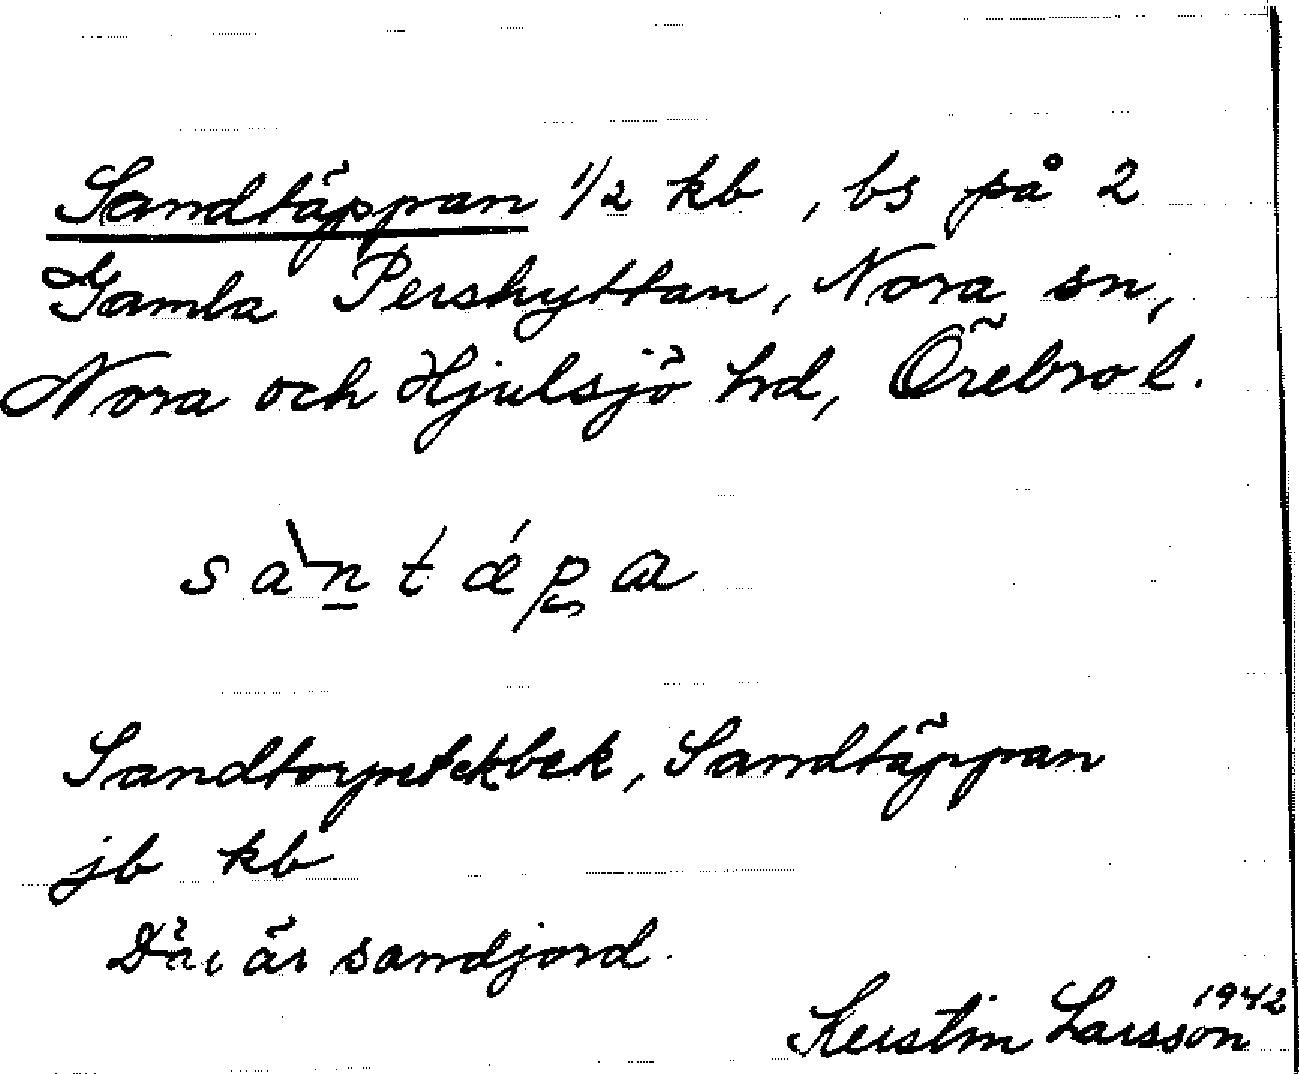 Sandtäppan 1/2 kb, bs på 2
Gamla Pershyttan, Nora sn,
Nora och Hjulsjö hd, Örebro l.
sàntǽpa
Sandtäppan
jb kb
Där är sandjord.
Kerstin Larsson 1942